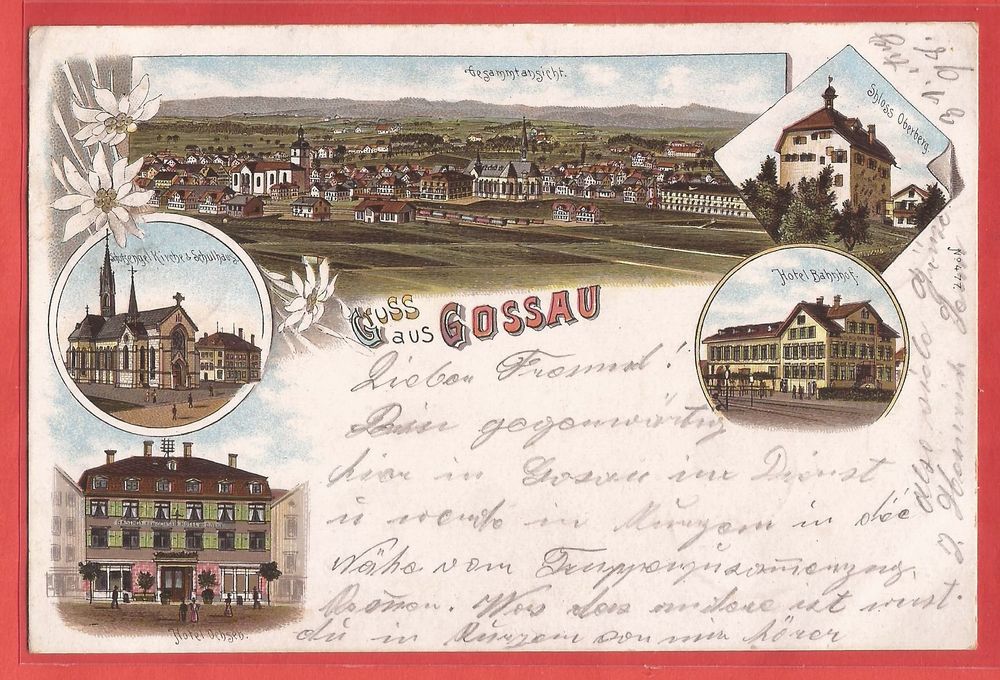 Gesammtansicht.
Schloss Oberberg.
Schutzengel Kirche & Schulhaus
Hotel Bahnhof.
No 477
Gruss
aus GOSSAU
Hotel Ochsen.
Lieber Freund!
Bin gegenwärtig
hier in Gosau im Dienst
u werde in Kurzem in die
Nähe vom
kommen. Was das andere ist wirst
du in Kurzem von mir hören
also viele Grüsse